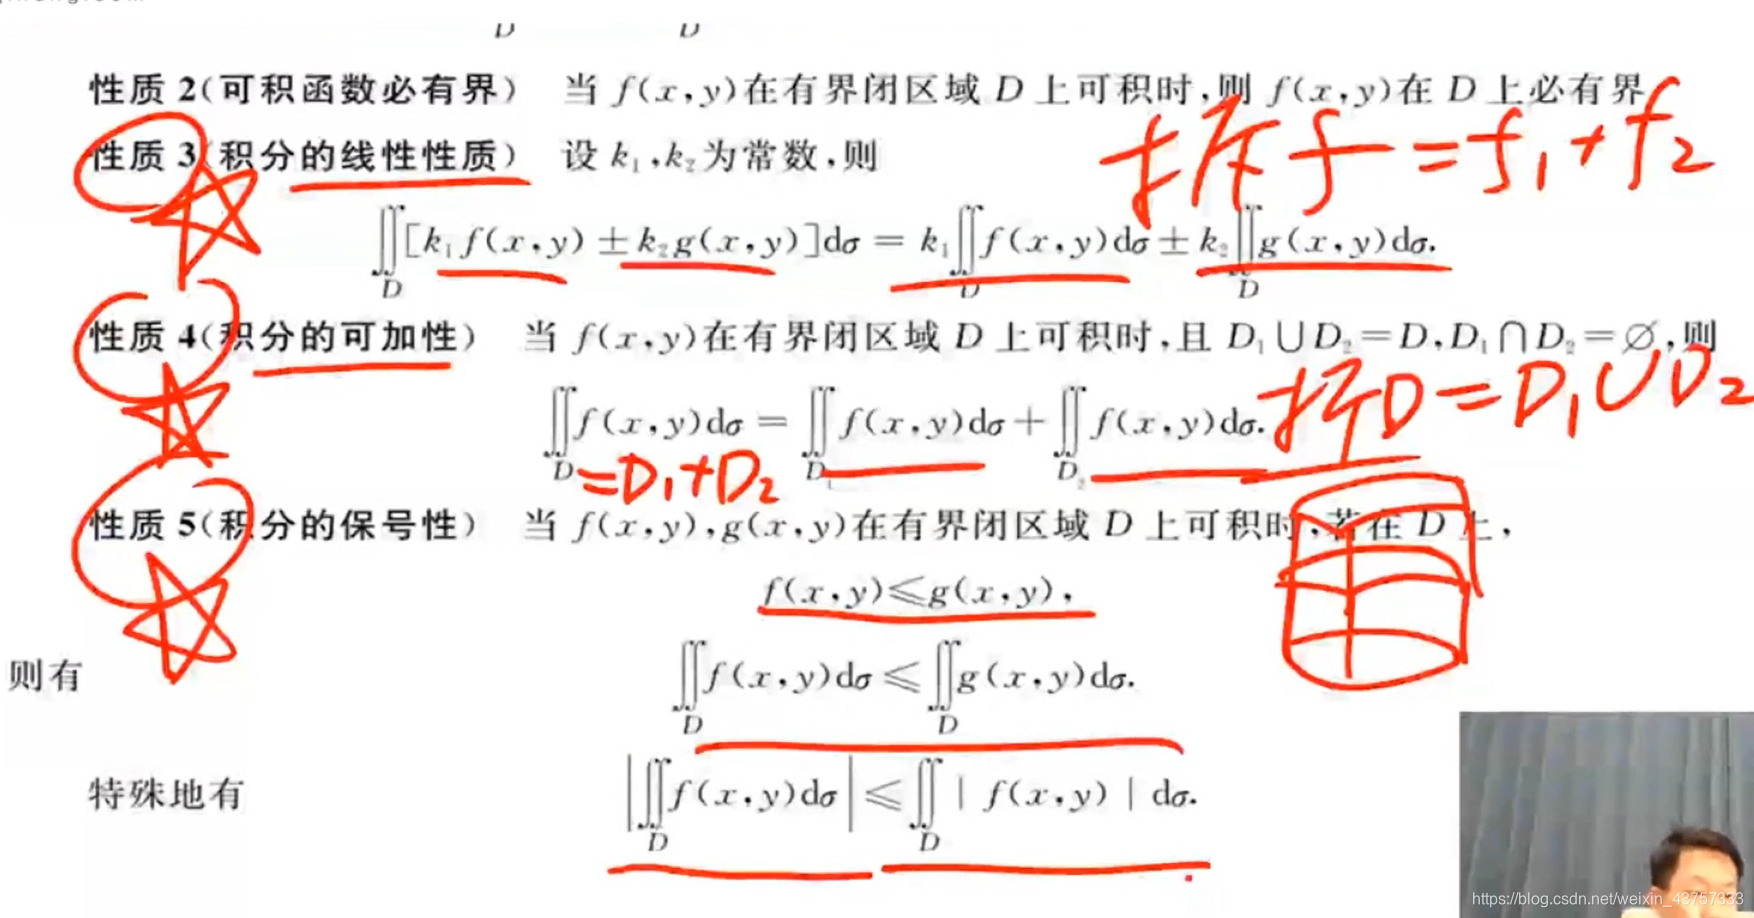 D D
性质 2(可积函数必有界) 当 f(x,y)在有界闭区域 D 上可积时,则 f(x,y)在 D 上必有界
拆 f = f₁ + f₂
性质 3(积分的线性性质) 设 k₁,k₂为常数,则
∬_D [k₁f(x,y) ± k₂g(x,y)]dσ = k₁∬_D f(x,y)dσ ± k₂∬_D g(x,y)dσ.
性质 4(积分的可加性) 当 f(x,y)在有界闭区域 D 上可积时,且 D₁∪D₂=D,D₁∩D₂=∅,则
拆D = D₁∪D₂
∬_D f(x,y)dσ = ∬_D₁ f(x,y)dσ + ∬_D₂ f(x,y)dσ.
=D₁+D₂
性质 5(积分的保号性) 当 f(x,y),g(x,y)在有界闭区域 D 上可积时,若在 D 上,
f(x,y)≤g(x,y),
则有 ∬_D f(x,y)dσ ≤ ∬_D g(x,y)dσ.
特殊地有 |∬_D f(x,y)dσ| ≤ ∬_D | f(x,y) | dσ.
https://blog.csdn.net/weixin_43757333